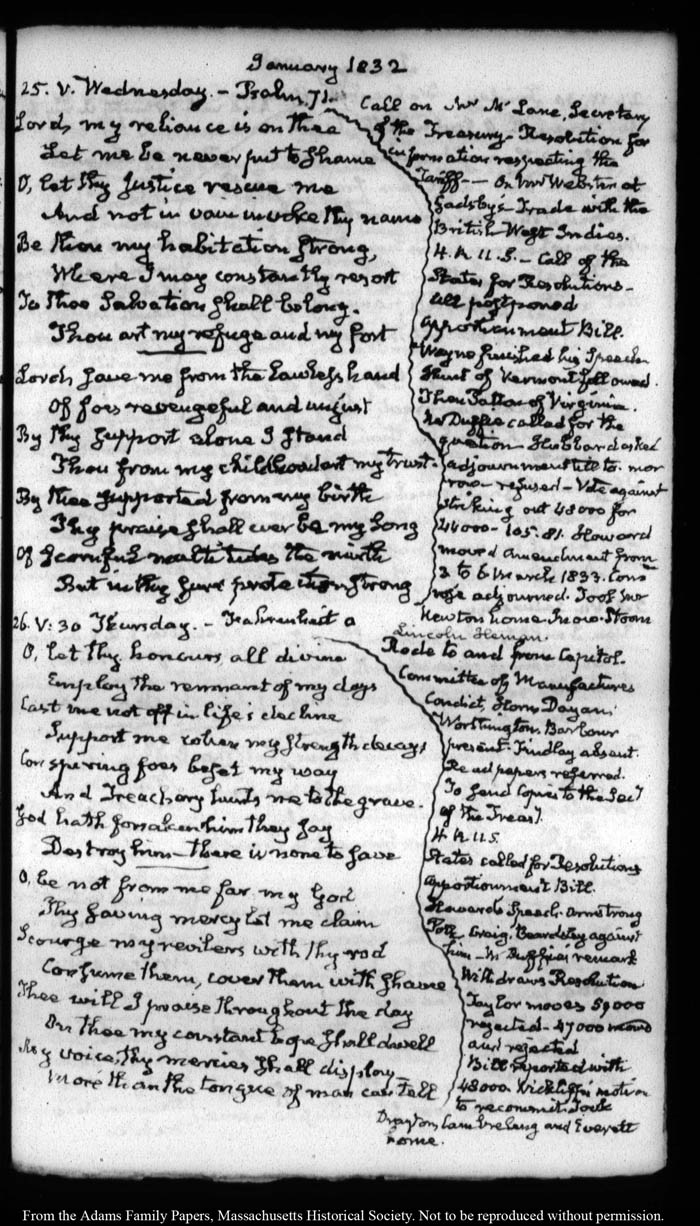 January 1832
25. V. Wednesday. - Psalm 71.
Lord, my reliance is on thee
Let me be never put to shame
O, let thy Justice rescue me
And not in vain invoke thy name
Be thou my habitation strong,
Where I may constantly resort
To thee Salvation shall belong.
Thou art my refuge and my fort
Lord, save me from the lawless hand
Of foes revengeful and unjust
By thy support alone I stand
Thou from my childhood art my trust.
By thee supported from my birth
Thy praise shall ever be my song
Of scornful the mirth
But in thy sure protection strong
Call on Mr Mc Lane, Secretary
of the Treasury - Resolution for
information respecting the
Tariff - - On Mr Webster at
Gadsby's Trade with the
British West Indies.
H. R. U.S. - Call of the
States for Resolutions -
all postponed
apportionment Bill.
Wayne finished his Speech
Hunt of Vermont followed.
Then Patton of Virginia.
McDuffie called for the
question - Hubbard asked
adjournment till to-mor
row - refused - Vote against
striking out 48000 for
44000 - 105. 81. Howard
moved amendment from
3 to 6 March 1833. Com
rose adjourned. Took Mr
Newton home. Snow-Storm
26. V: 30 Thursday. - Fahrenheit 0
O, let thy honours all divine
Employ the remnant of my days
Cast me not off in life's decline
Support me when my strength decays
Conspiring foes beset my way
And Treachery hunts me to the grave.
God hath forsaken him they say
Destroy him - there is none to save
O, be not from me far my God
Thy saving mercy let me claim
Scourge my revilers with thy rod
Consume them, cover them with shame
Thee will I praise throughout the day
On thee my constant hope shall dwell
My voice, thy mercies shall display -
More than the tongue of man can tell
Lincoln Heman.
Rode to and from Capitol.
Committee of Manufactures
Condict, Horn, Dayan,
Worthington, Barbour
present. Findlay absent.
Read papers referred.
To send Copies to the Secy
of the Treasy.
H. R. U.S.
States called for Resolutions
apportionment Bill.
Howards Speech. Armstrong
Polk, Craig, Beardsley against
him - McDuffie's remark
Withdraws Resolution
Taylor moves 59000
rejected - 47000 moved
and rejected
Bill reported with
48000. Wickliffe's motion
to recommit. Took
Drayton, Cambreleng and Everett
home.
From the Adams Family Papers, Massachusetts Historical Society. Not to be reproduced without permission.